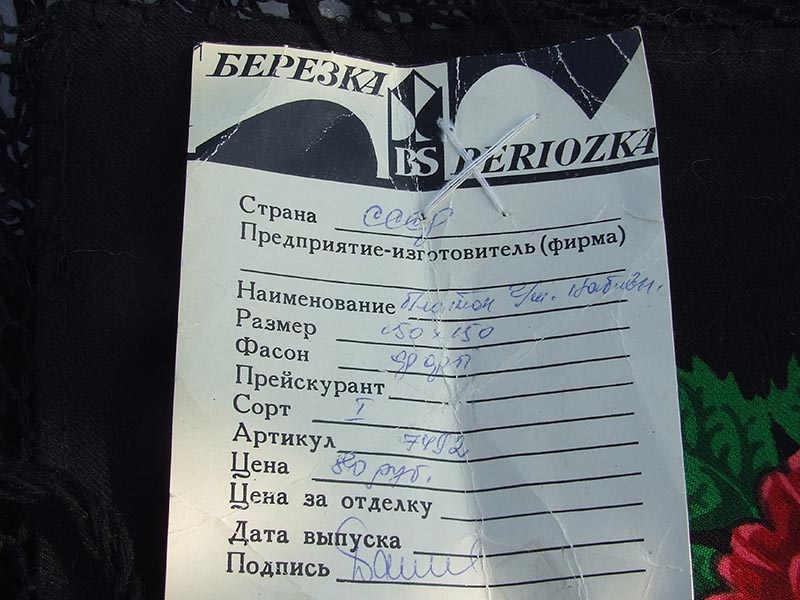 БЕРЕЗКА
BS BERIOZKA
Страна СССР
Предприятие-изготовитель (фирма)
Наименование Платок ч/ш. набивн.
Размер 150 x 150
Фасон
Прейскурант
Сорт I
Артикул 7492
Цена 80 руб.
Цена за отделку
Дата выпуска
Подпись